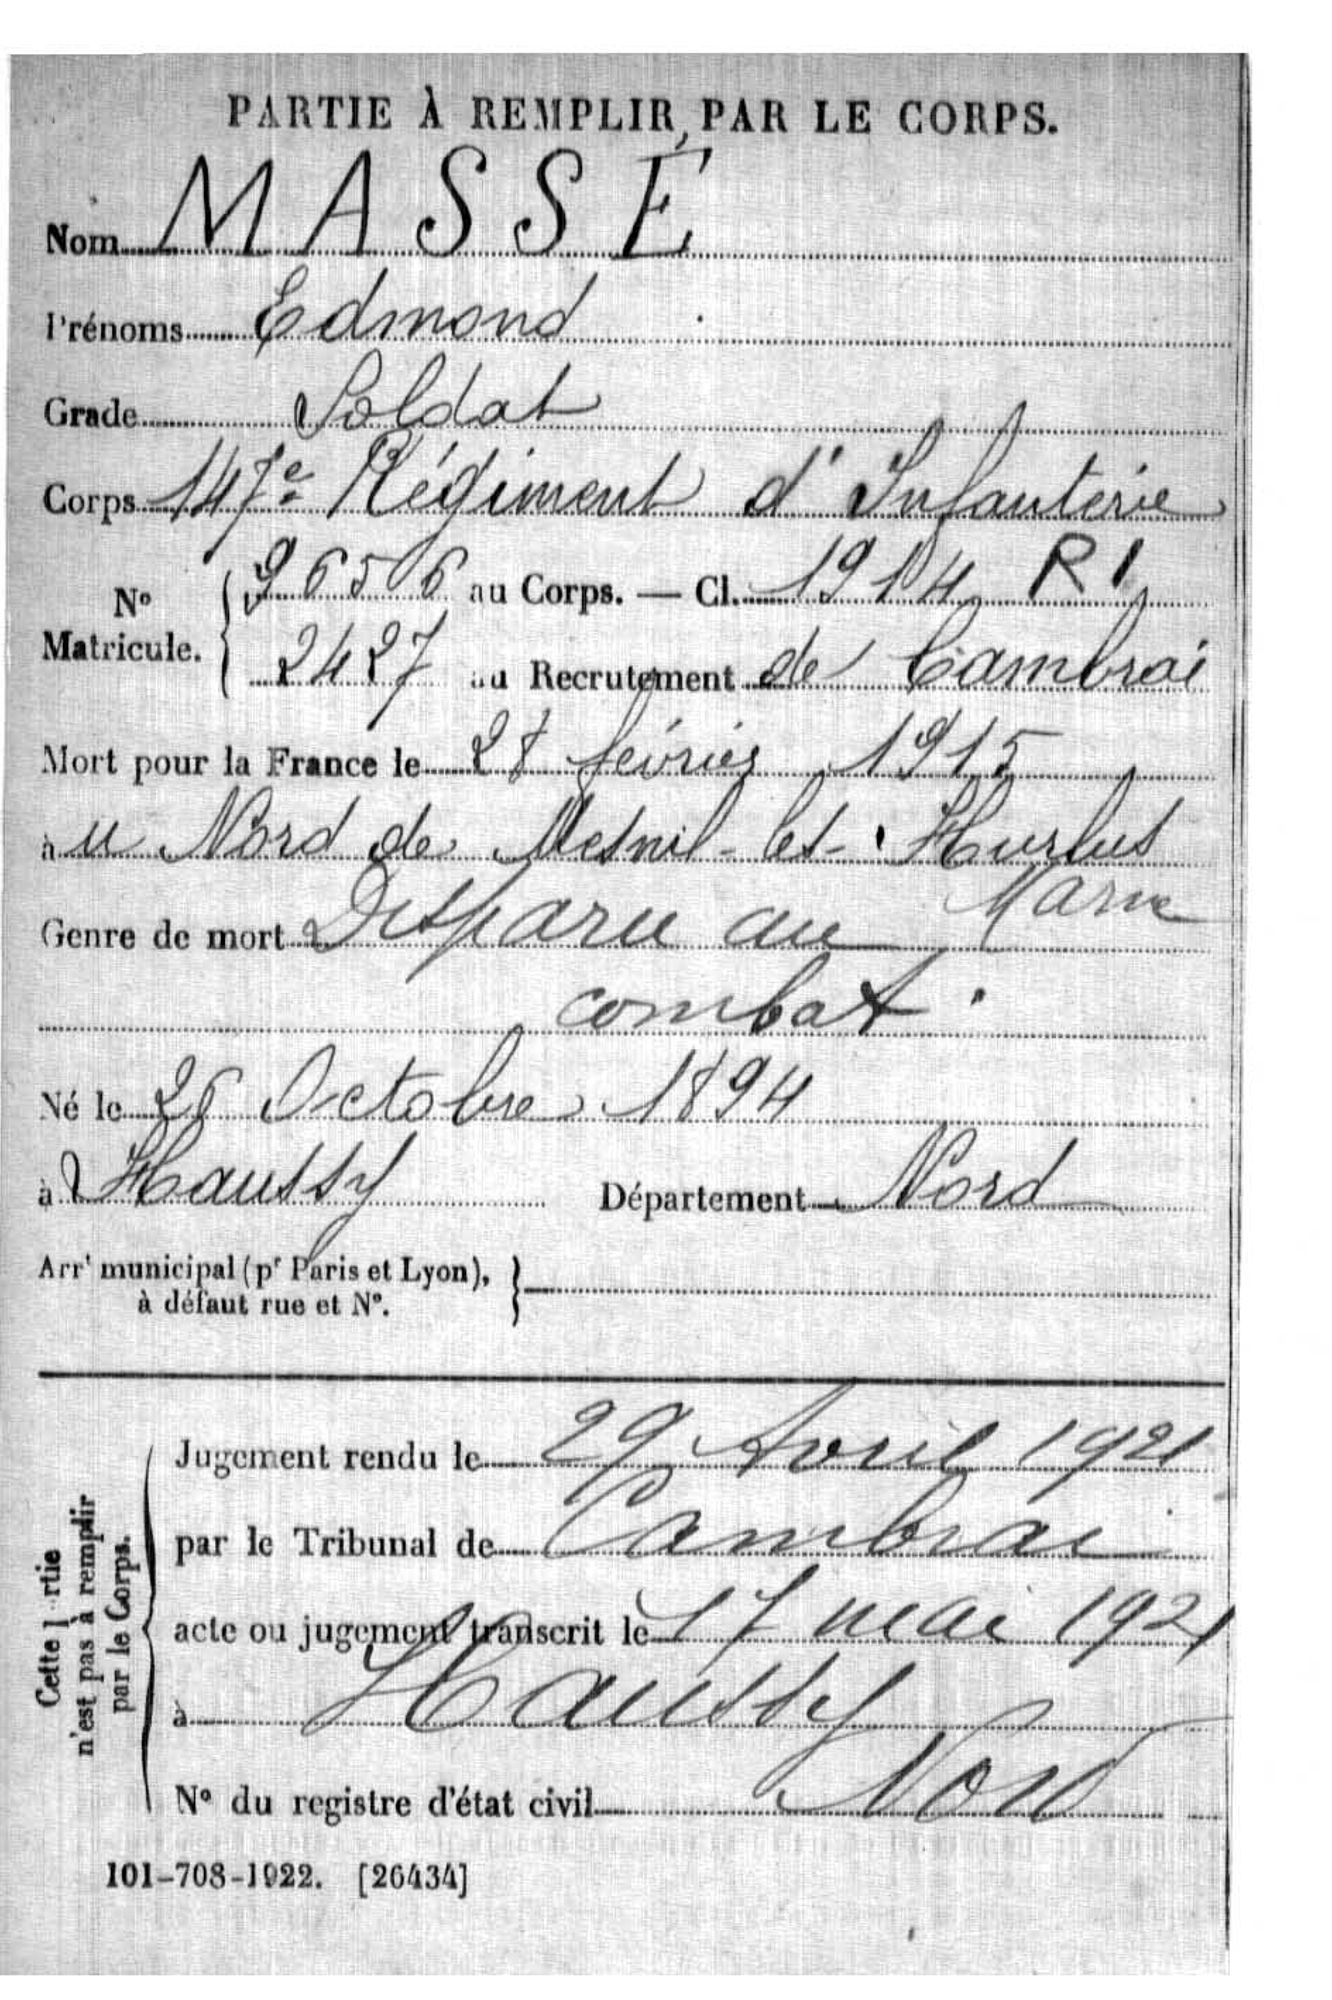 PARTIE À REMPLIR PAR LE CORPS.
Nom MASSÉ
Prénoms Edmond
Grade Soldat
Corps 147e Régiment d'Infanterie
No Matricule. { 9656 au Corps. — Cl. 1914 RI
2427 au Recrutement de Cambrai
Mort pour la France le 28 février 1915
à u Nord de Mesnil-les-Hurlus
Marne
Genre de mort Disparu au
combat.
Né le 26 Octobre 1894
à Haussy Département Nord
Arrt municipal (pr Paris et Lyon),
à défaut rue et No.
Cette partie
n'est pas à remplir
par le Corps.
Jugement rendu le 29 Avril 1921
par le Tribunal de Cambrai
acte ou jugement transcrit le 17 mai 1921
à Haussy
Nord
No du registre d'état civil
101-708-1922. [26434]